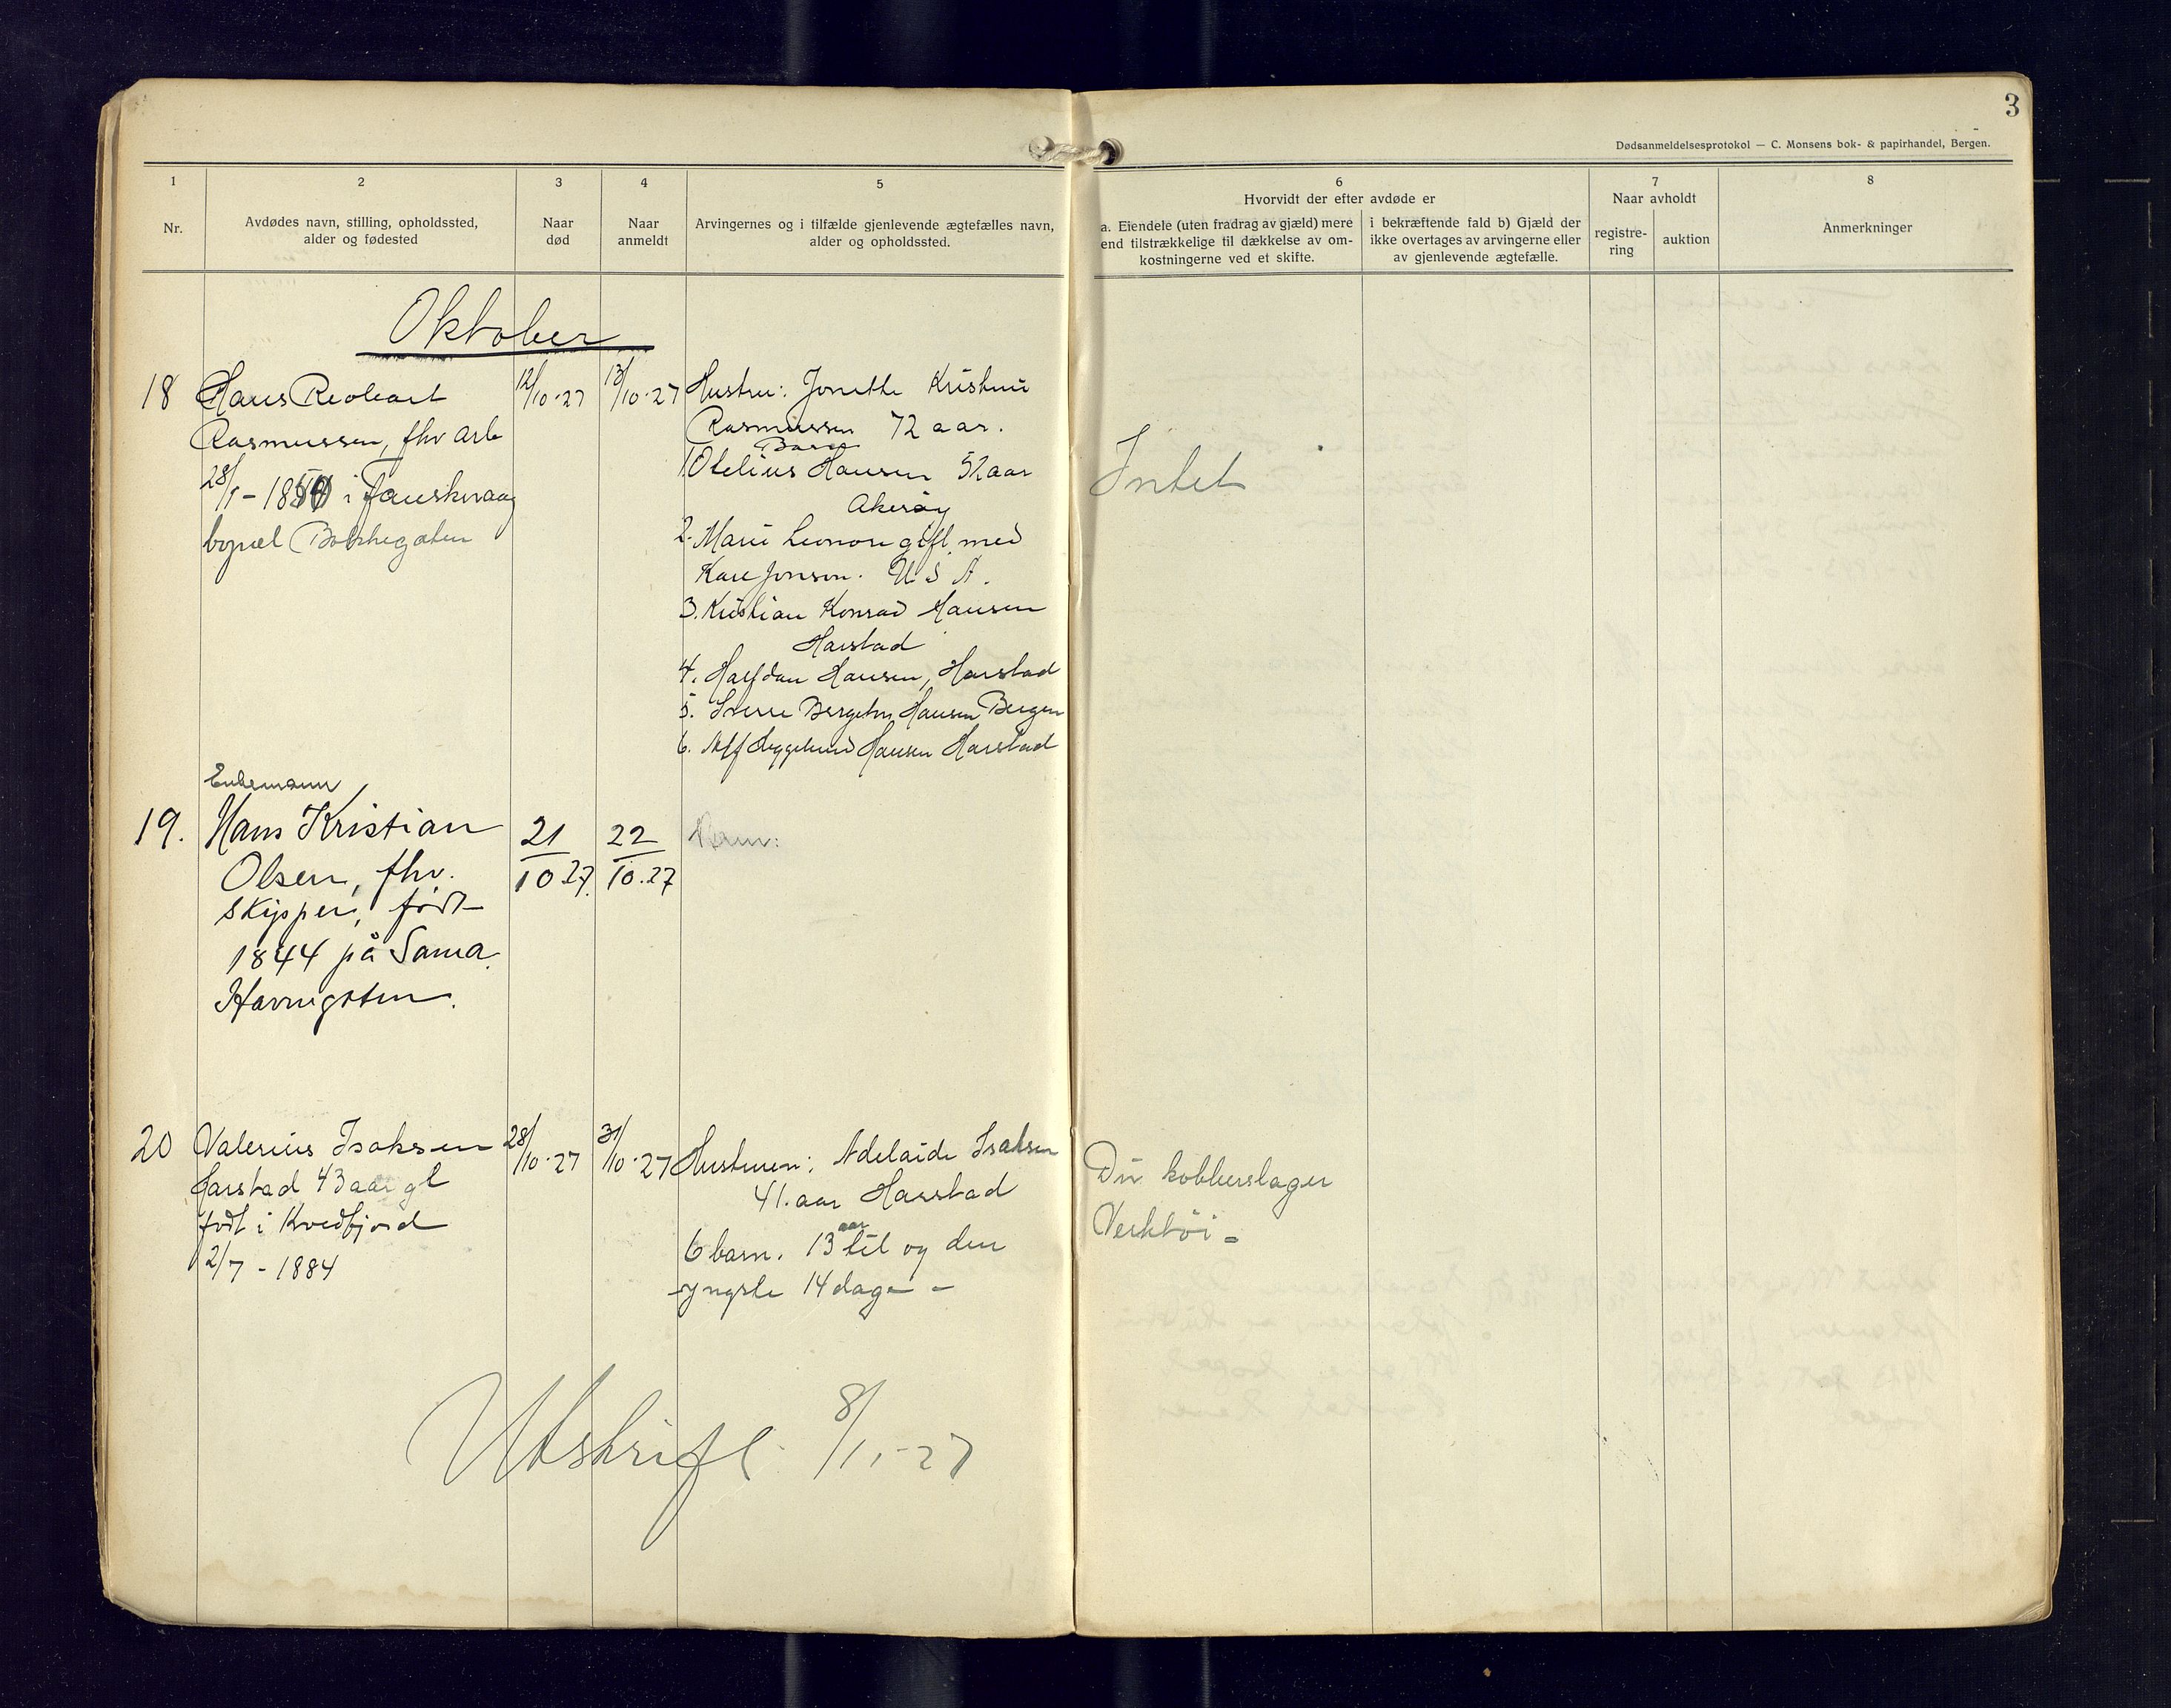 3
Dødsanmeldelsesprotokol — C. Monsens bok- & papirhandel, Bergen.
1
Nr.
2
Avdødes navn, stilling, opholdssted,
alder og fødested
3
Naar
død
4
Naar
anmeldt
5
Arvingernes og i tilfælde gjenlevende ægtefælles navn,
alder og opholdssted.
6
Hvorvidt der efter avdøde er
a. Eiendele (uten fradrag av gjæld) mere
end tilstrækkelige til dækkelse av om-
kostningerne ved et skifte.
i bekræftende fald b) Gjæld der
ikke overtages av arvingerne eller
av gjenlevende ægtefælle.
7
Naar avholdt
registre-
ring
auktion
8
Anmerkninger
Oktober
18
Hans
Rasmussen, fhv arb
28/9 - i
bopæl
12/10-27
13/10-27
Hustru: Jonette Kristine
Rasmussen 72 aar.
Barn
1 Otelius Hansen 52 aar
Akerøy
2. Marie Leonore gift med
Jonson. U S A.
3. Kristian Konrad Hansen
Harstad
4. Halfdan Hansen, Harstad
5. Sverre Hansen Bergen
6. Hansen Harstad
Intet
Enkemann
19.
Hans Kristian
Olsen, fhv.
skipper, født
1844 på Sama
Havnegaten.
21/10.27.
22/10.27
Barn:
20
Valerius Isaksen
Harstad 43 aar gl
født i Kvedfjord
2/7 - 1884
28/10-27
31/10-27
Hustruen: Adelaide Isaksen
41. aar Harstad
6 barn. 13 aar til og den
yngste 14 dage -
Div kobberslager
Verktøi -
Utskrift 8/11-27